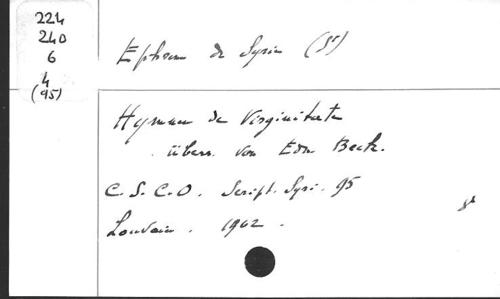 224
240
6
4
(95)
Ephrem de Syrie (St)
Hymnen de Virginitate
übers. von Edm Beck.
C.S.C.O. Script. Syri. 95
Louvain. 1962.